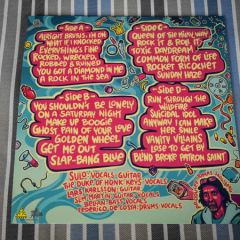 SIDE A
ALRIGHT BRUTUS, I'M ON
WHAT IF I KNOCKED
EVERYTHINGS FINE
ROCKED, WRECKED,
ROBBED & RUINED
YOU GOT A DIAMOND IN ME
A ROCK IN THE SEA
SIDE B
YOU SHOULDN'T BE LONELY
ON A SATURDAY NIGHT
MAKE UP BOOGIE
GHOST PAIN OF YOUR LOVE
GOLDEN WHEEL
GET ME OUT
SLAP-BANG BLUE
SIDE C
QUEEN OF THE HIGHWAY
ROCK IT & ROLL IT
TOXIC DAYDREAM
COMMON FORM OF LIFE
ROCKET RICOCHET
SUNDAY HAZE
SIDE D
RUN THROUGH THE
WILDFIRE
SUICIDAL IDOL
ANYWAY I CAN MAKE
HER SMILE
VANITY VILLAINS
LOSE TO GET BY
BLIND BROKE PATRON SAINT
SULO: VOCALS GUITAR
THE DUKE OF HONK: KEYS, VOCALS
LARS KARLSSON: GUITAR
SLIM MARTIN: GUITAR, VOCALS
BEDAN: BASS, VOCALS
FEDERICO DE COSTA: DRUMS, VOCALS